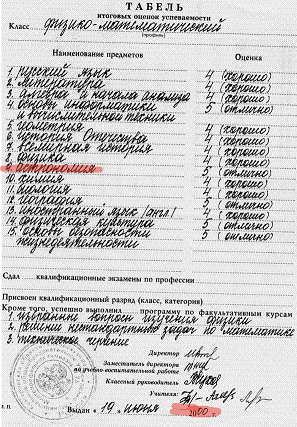 ТАБЕЛЬ
итоговых оценок успеваемости
Класс физико-математический
(профиль)
Наименование предметов Оценка
1. русский язык 4 (хорошо)
2. литература 4 (хорошо)
3. алгебра и начала анализа 4 (хорошо)
4. основы информатики
и вычислительной техники 5 (отлично)
5. геометрия 4 (хорошо)
6. история Отечества 4 (хорошо)
7. всемирная история 4 (хорошо)
8. физика 4 (хорошо)
9. астрономия 5 (отлично)
10. химия 4 (хорошо)
11. биология 4 (хорошо)
12. география 5 (отлично)
13. иностранный язык /англ/ 4 (хорошо)
14. физическая культура 5 (отлично)
15. основы безопасности 5 (отлично)
жизнедеятельности
Сдал квалификационные экзамены по профессии
Присвоен квалификационный разряд (класс, категория)
Кроме того, успешно выполнил программу по факультативным курсам
1. избранные вопросы изучения физики
2. решении нестандартных задач по математике
3. техническое черчение
Директор
Заместитель директора
по учебно-воспитательной работе
Классный руководитель
Учителя:
М. п.
Выдан «19» июня 2000 г.